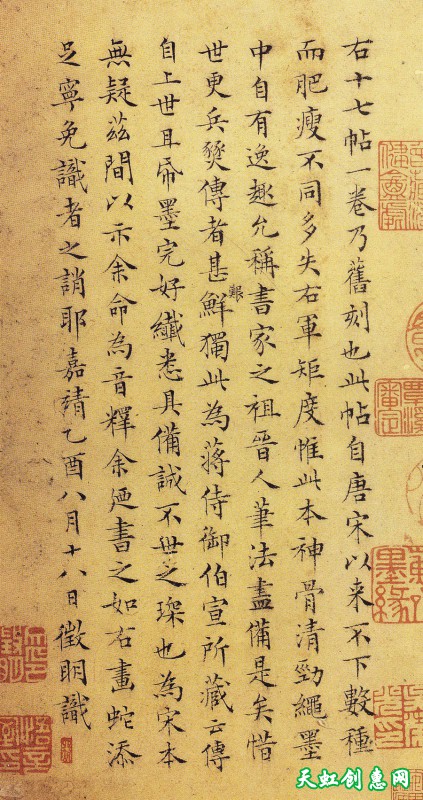 右十七帖一卷乃舊刻也此帖自唐宋以来不下數種
而肥瘦不同多失右軍矩度惟此本神骨清勁繩墨
中自有逸趣允稱書家之祖晉人筆法盡備是矣惜
世更兵燹傳者甚鮮獨此為蔣侍御伯宣所藏云傳
艱
自上世且帋墨完好纖悉具備誠不世之琛也為宋本
無疑茲間以示余命為音釋余廼書之如右畫蛇添
足寧免識者之誚耶嘉靖乙酉八月十八日徵明識
墨緣
天虹创惠网